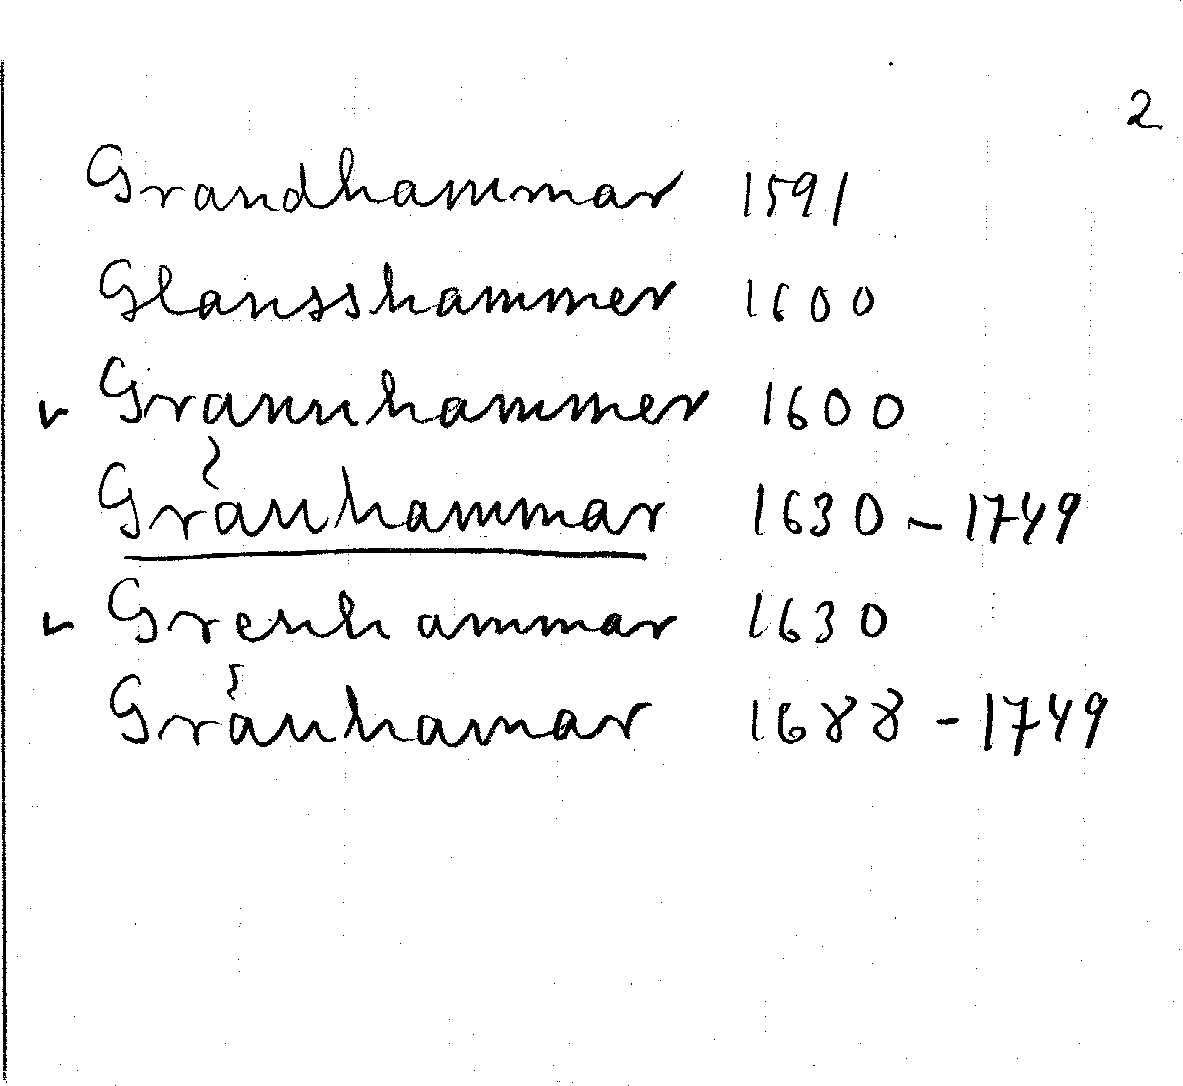 2
Grandhammar 1591
Glansshammer 1600
✓ Grannhammer 1600
Gränhammar 1630 – 1749
✓ Grenhammar 1630
Gränhamar 1688 – 1749